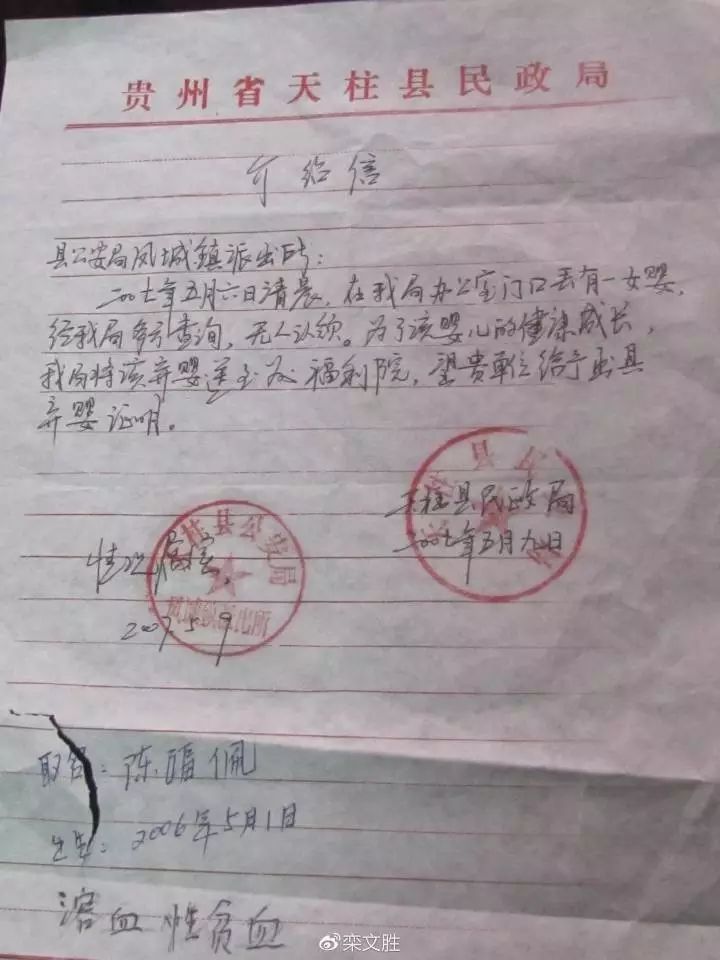 贵州省天柱县民政局
介绍信
县公安局凤城镇派出所:
二〇〇七年五月六日清晨,在我局办公室门口丢有一女婴,
经我局多方查询,无人认领。为了该婴儿的健康成长,
我局将该弃婴送至 福利院,望贵单位给予出具
弃婴证明。
天柱县民政局
二〇〇七年五月九日
情况属实。
柱县公安局
凤城镇派出所
2007.5.9
取名:陈福佩
出生:2006年5月1日
溶血性贫血
栾文胜